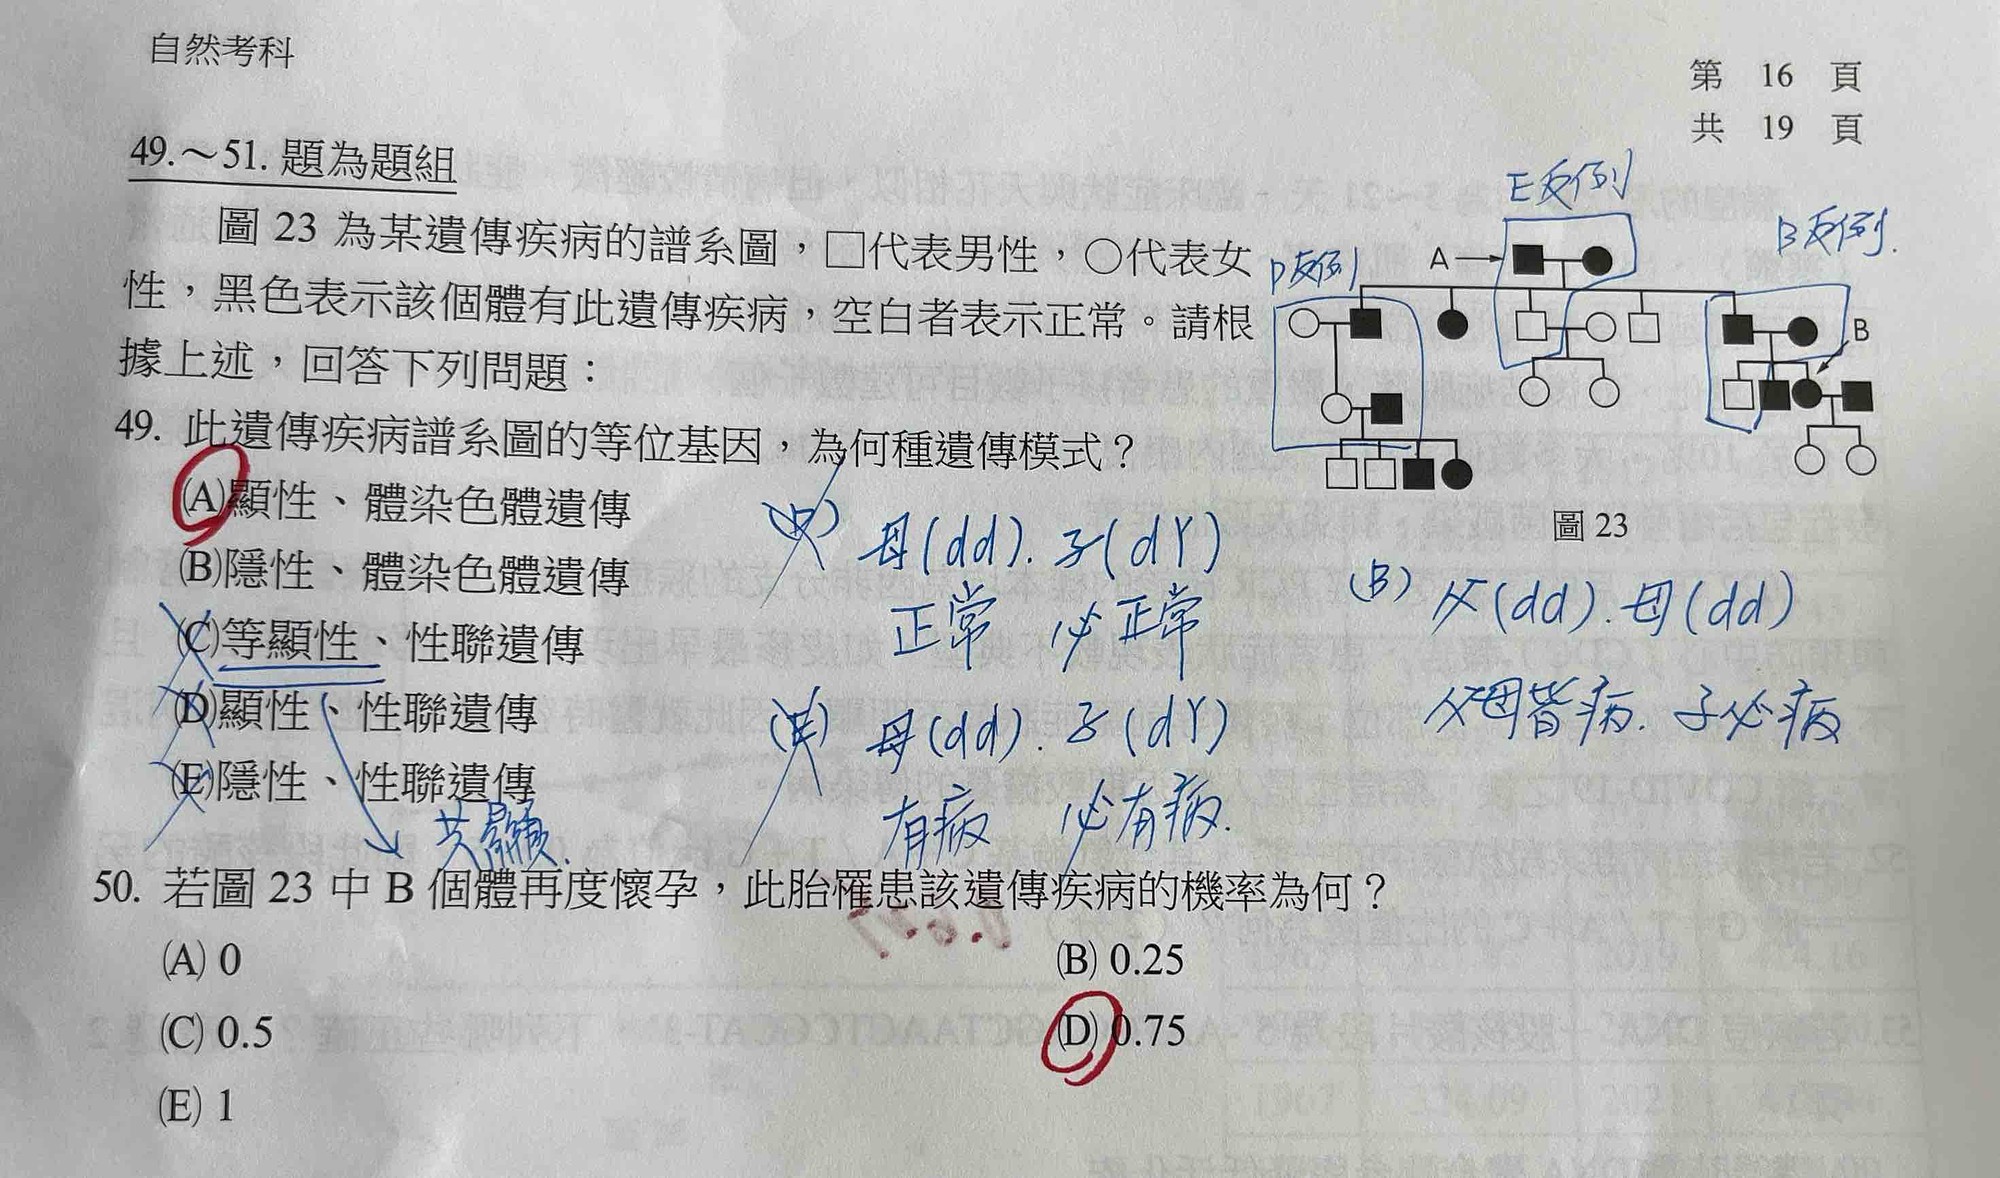 自然考科
第 16 頁
共 19 頁
49.～51. 題為題組
圖 23 為某遺傳疾病的譜系圖，□代表男性，○代表女
性，黑色表示該個體有此遺傳疾病，空白者表示正常。請根
據上述，回答下列問題：
E反例
D反例
B反例.
A
B
圖 23
49. 此遺傳疾病譜系圖的等位基因，為何種遺傳模式？
(A)顯性、體染色體遺傳
(B)隱性、體染色體遺傳
(C)等顯性、性聯遺傳
(D)顯性、性聯遺傳
(E)隱性、性聯遺傳
共顯.
(D) 母(dd). 子(dY)
正常 必正常
(E) 母(dd). 子(dY)
有病 必有病.
(B) 父(dd). 母(dd)
父母皆病. 子必病
50. 若圖 23 中 B 個體再度懷孕，此胎罹患該遺傳疾病的機率為何？
(A) 0
(B) 0.25
(C) 0.5
(D) 0.75
(E) 1